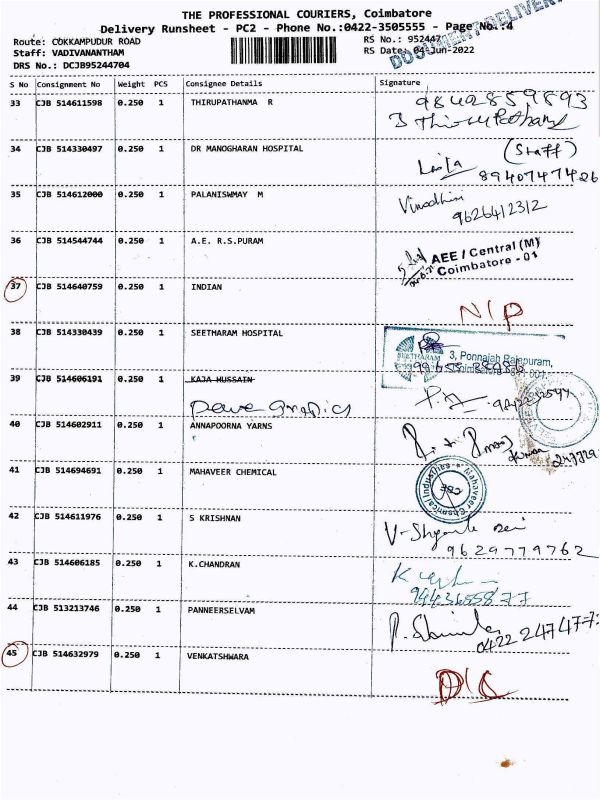 THE PROFESSIONAL COURIERS, Coimbatore
Delivery Runsheet - PC2 - Phone No.:0422-3505555 - Page No.:4
Route: COKKAMPUDUR ROAD
RS No.: 952447
Staff: VADIVANANTHAM
RS Date: 04-Jun-2022
DRS No.: DCJB95244704
S No Consignment No Weight PCS Consignee Details Signature
33 CJB 514611598 0.250 1 THIRUPATHANMA R 9842859893
34 CJB 514330497 0.250 1 DR MANOGHARAN HOSPITAL (Staff)
8940747426
35 CJB 514612000 0.250 1 PALANISWMAY M Vinodhini
9626412312
36 CJB 514544744 0.250 1 A.E. R.S.PURAM AEE / Central (M)
Coimbatore - 01
37 CJB 514640759 0.250 1 INDIAN N/P
38 CJB 514330439 0.250 1 SEETHARAM HOSPITAL
SEETHARAM 3, Ponnaiah Rajapuram,
39 CJB 514606191 0.250 1 KAJA HUSSAIN
40 CJB 514602911 0.250 1 ANNAPOORNA YARNS
41 CJB 514694691 0.250 1 MAHAVEER CHEMICAL Mahaveer Chemical Industries CBE
42 CJB 514611976 0.250 1 S KRISHNAN
9629779762
43 CJB 514606185 0.250 1 K.CHANDRAN
44 CJB 513213746 0.250 1 PANNEERSELVAM
45 CJB 514632979 0.250 1 VENKATSHWARA